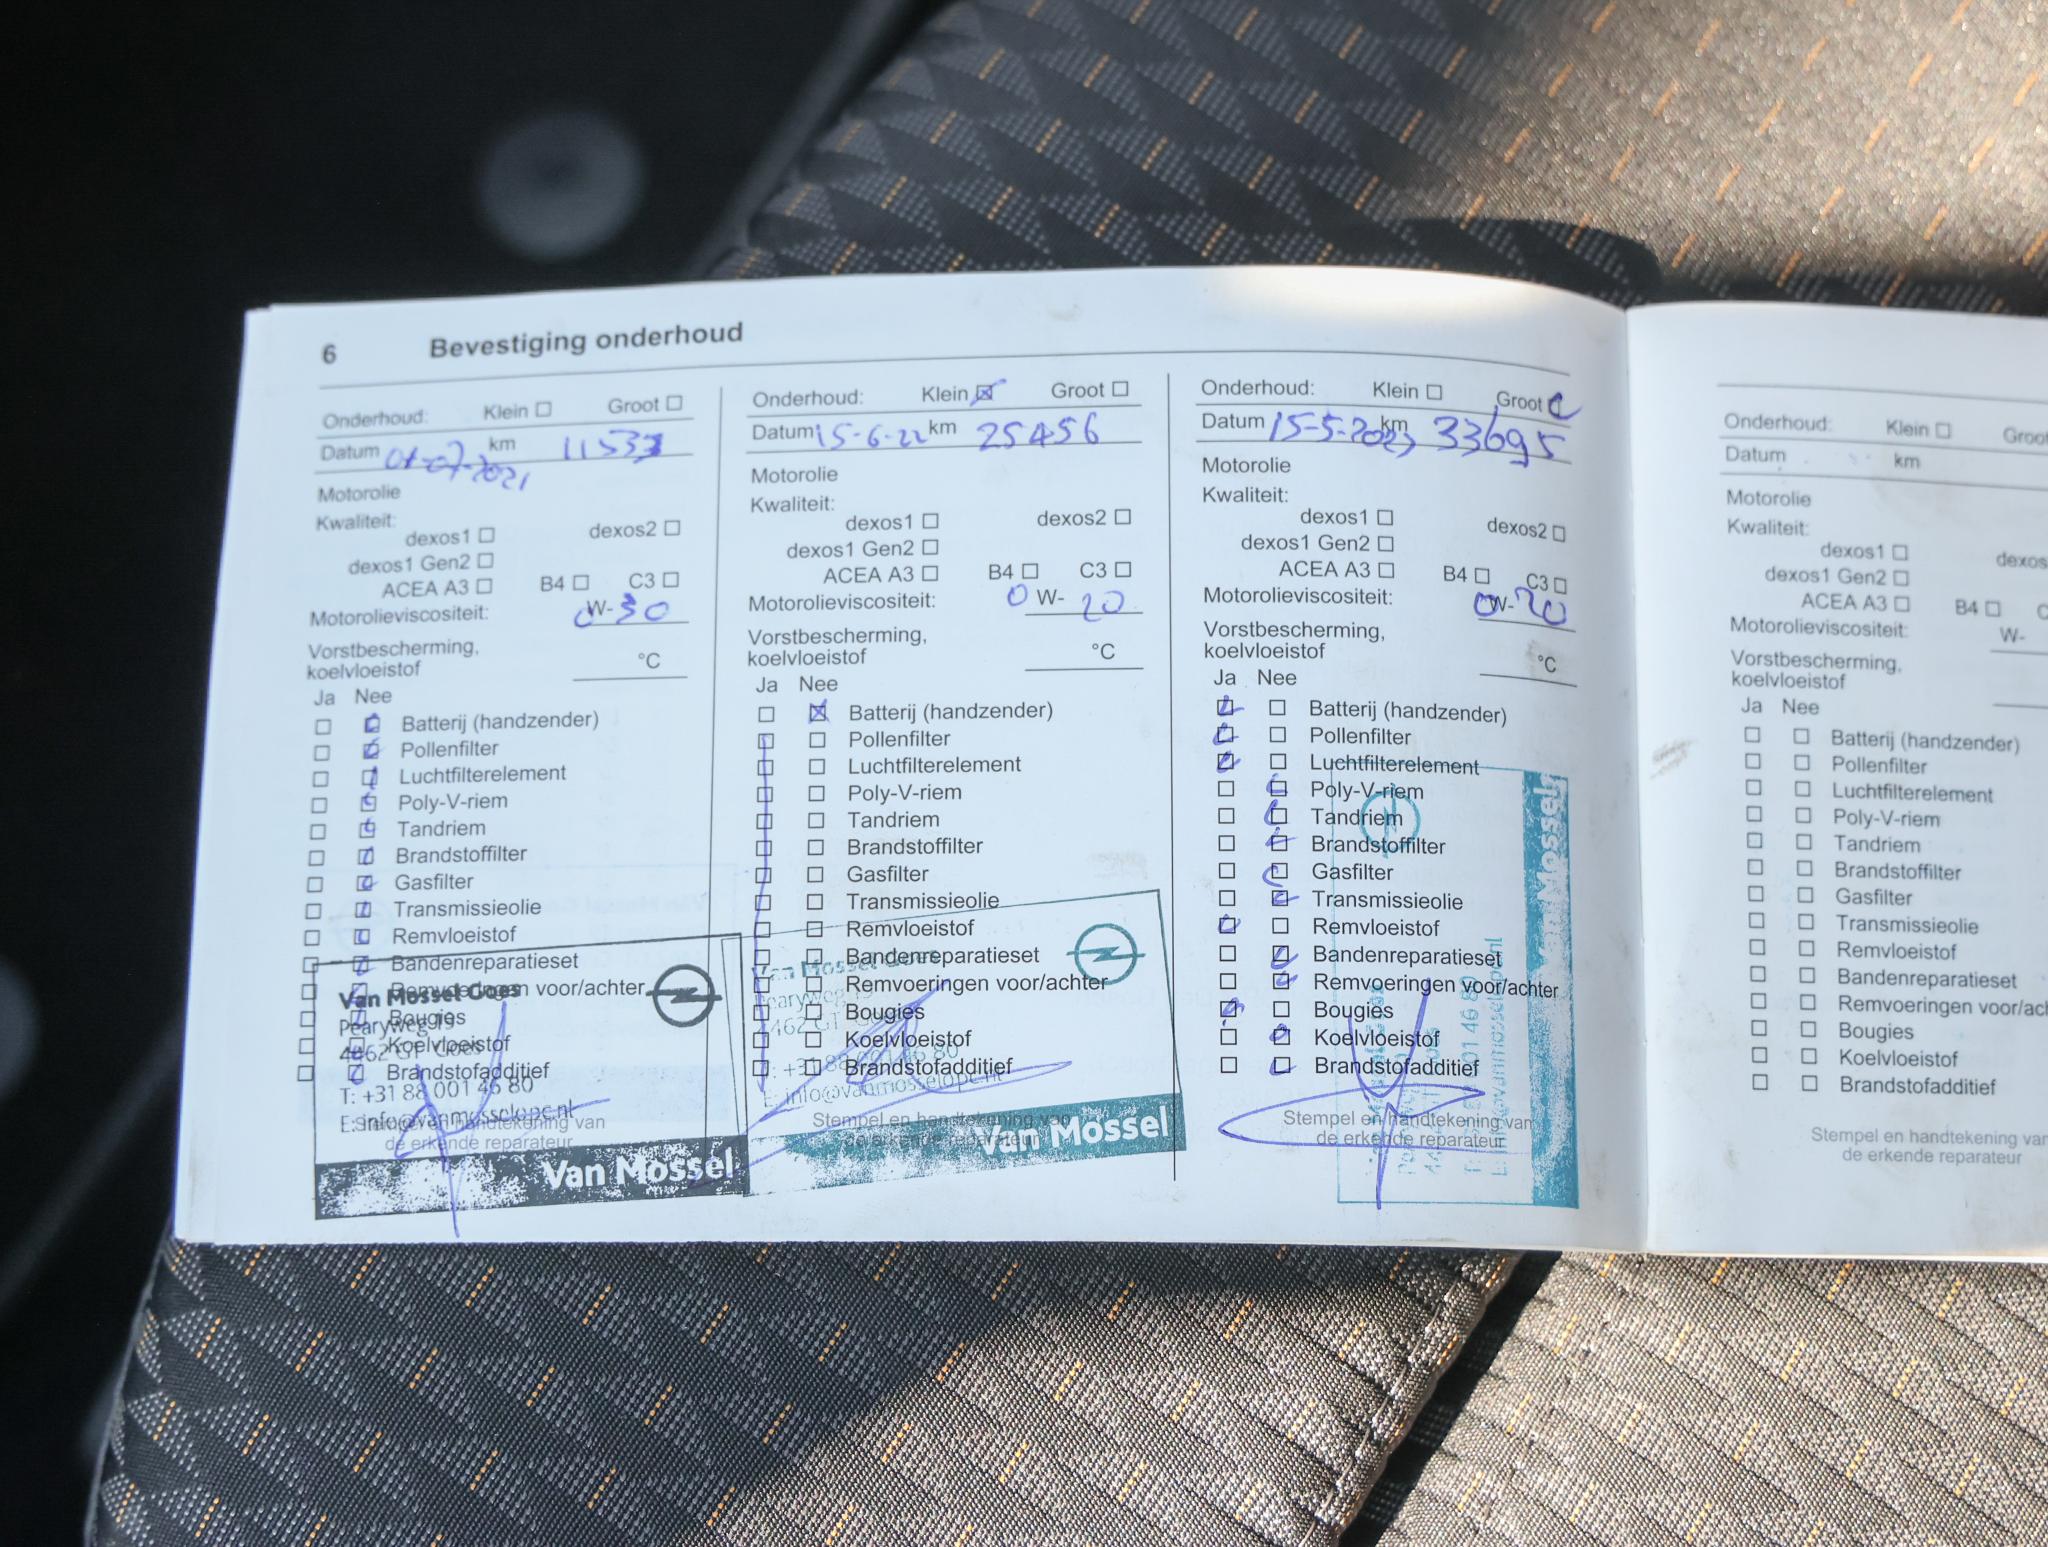 6 Bevestiging onderhoud
Onderhoud: Klein Groot
Datum 01-07-2021 km
Motorolie
Kwaliteit:
dexos1 dexos2
dexos1 Gen2
ACEA A3 B4 C3
Motorolieviscositeit: 0 W- 30
Vorstbescherming,
koelvloeistof °C
Ja Nee
Batterij (handzender)
Pollenfilter
Luchtfilterelement
Poly-V-riem
Tandriem
Brandstoffilter
Gasfilter
Transmissieolie
Remvloeistof
Bandenreparatieset
Remvoeringen voor/achter
Bougies
Koelvloeistof
Brandstofadditief
Stempel en handtekening van
de erkende reparateur
Van Mossel Goes
Pearyweg 19
4462 GT Goes
T: +31 88 001 46 80
E: info@vanmosselopc.nl
Van Mossel
Onderhoud: Klein Groot
Datum 15-6-22 km 25456
Motorolie
Kwaliteit:
dexos1 dexos2
dexos1 Gen2
ACEA A3 B4 C3
Motorolieviscositeit: 0 W- 20
Vorstbescherming,
koelvloeistof °C
Ja Nee
Batterij (handzender)
Pollenfilter
Luchtfilterelement
Poly-V-riem
Tandriem
Brandstoffilter
Gasfilter
Transmissieolie
Remvloeistof
Bandenreparatieset
Remvoeringen voor/achter
Bougies
Koelvloeistof
Brandstofadditief
Stempel en handtekening van
de erkende reparateur
Van Mossel Goes
Pearyweg 19
4462 GT Goes
T: +31 88 001 46 80
E: info@vanmosselopc.nl
Van Mossel
Onderhoud: Klein Groot
Datum 15-5-2023 km 33695
Motorolie
Kwaliteit:
dexos1 dexos2
dexos1 Gen2
ACEA A3 B4 C3
Motorolieviscositeit: 0 W- 20
Vorstbescherming,
koelvloeistof °C
Ja Nee
Batterij (handzender)
Pollenfilter
Luchtfilterelement
Poly-V-riem
Tandriem
Brandstoffilter
Gasfilter
Transmissieolie
Remvloeistof
Bandenreparatieset
Remvoeringen voor/achter
Bougies
Koelvloeistof
Brandstofadditief
Stempel en handtekening van
de erkende reparateur
Van Mossel
Onderhoud: Klein Groot
Datum km
Motorolie
Kwaliteit:
dexos1 dexos
dexos1 Gen2
ACEA A3 B4 C
Motorolieviscositeit: W-
Vorstbescherming,
koelvloeistof
Ja Nee
Batterij (handzender)
Pollenfilter
Luchtfilterelement
Poly-V-riem
Tandriem
Brandstoffilter
Gasfilter
Transmissieolie
Remvloeistof
Bandenreparatieset
Remvoeringen voor/ac
Bougies
Koelvloeistof
Brandstofadditief
Stempel en handtekening van
de erkende reparateur